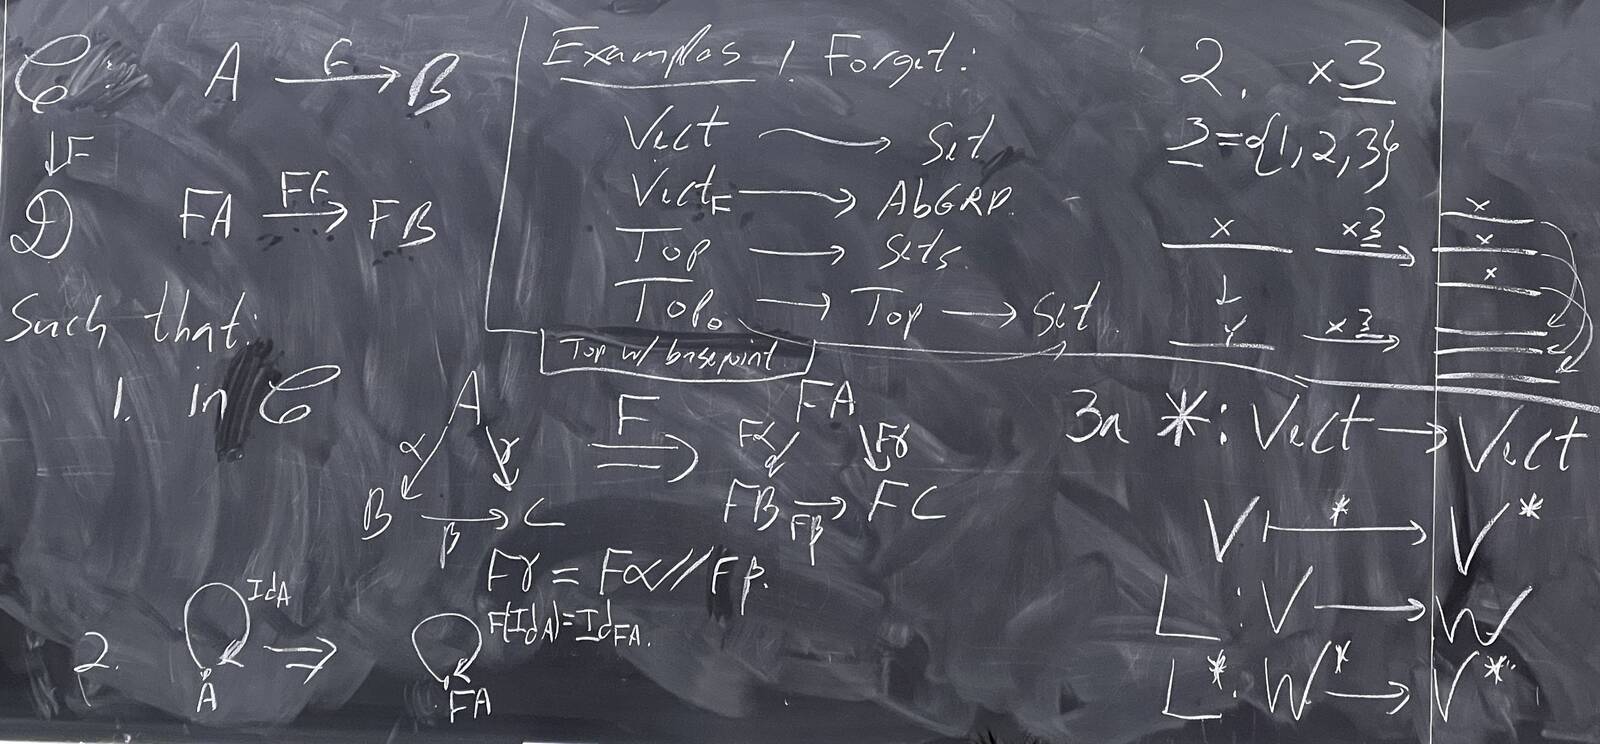 𝒞: A —f→ B
↓F
𝒟 FA —Ff→ FB
Such that:
1. in 𝒞
A
α γ
B —β→ C
F ⇒
FA
Fα Fγ
FB —Fβ→ FC
Fγ = Fα // Fβ.
2. IdA
A
⇒
F(IdA) = IdFA.
FA
Examples 1. Forget:
Vect → Set
VectF → AbGRP.
Top → Sets.
Top₀ → Top → Set.
Top w/ basepoint
2. ×3
3 = {1,2,3}
X —×3→ x
x
x
↓
Y —×3→
3a *: Vect → Vect
V ⊢*→ V*
L : V → W
L* : W* → V*